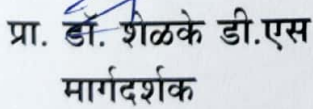 प्रा. डॉ. शेळके डी.एस
मार्गदर्शक